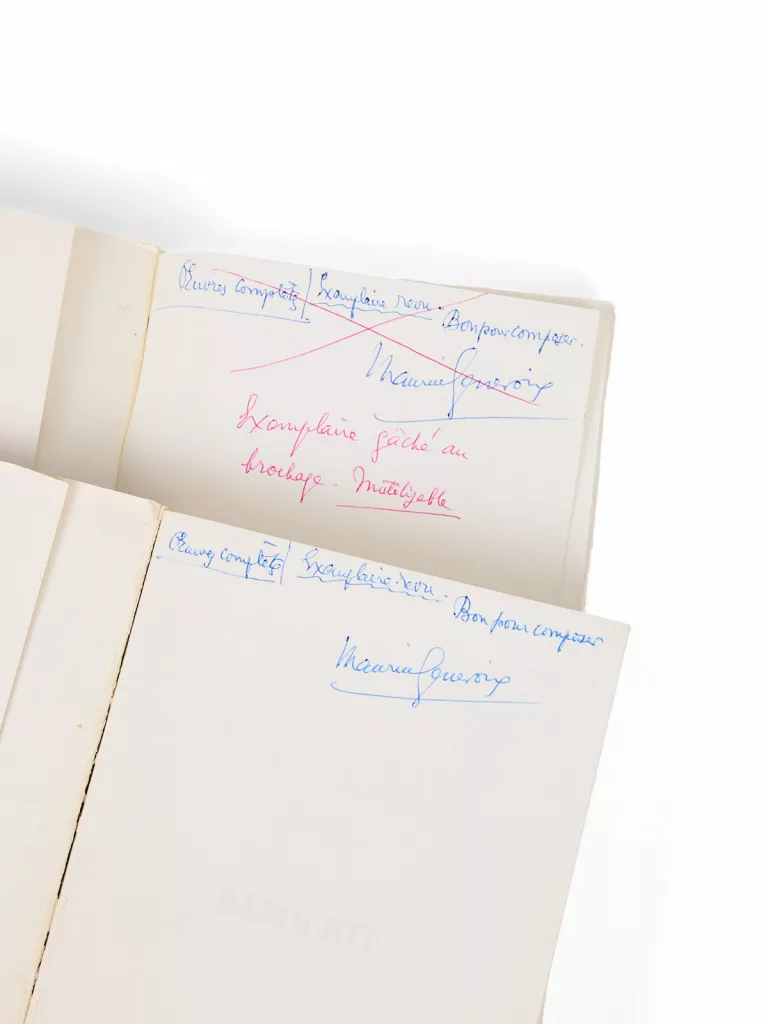 Œuvres complètes / Exemplaire revu.
Bon pour composer.
Maurice Genevoix
Exemplaire gâché au
brochage. Inutilisable
Œuvres complètes / Exemplaire revu.
Bon pour composer
Maurice Genevoix